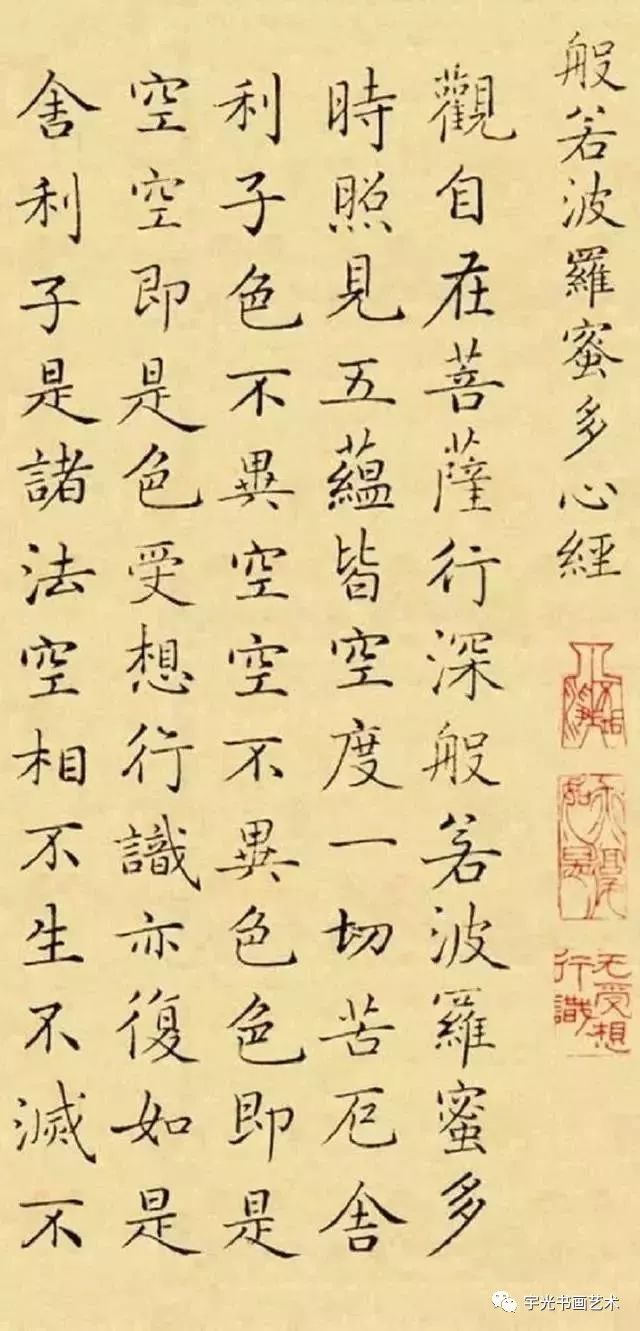 般若波羅蜜多心經
觀自在菩薩行深般若波羅蜜多
時照見五蘊皆空度一切苦厄舍
利子色不異空空不異色色即是
空空即是色受想行識亦復如是
舍利子是諸法空相不生不滅不
无受想
行識
宇光书画艺术